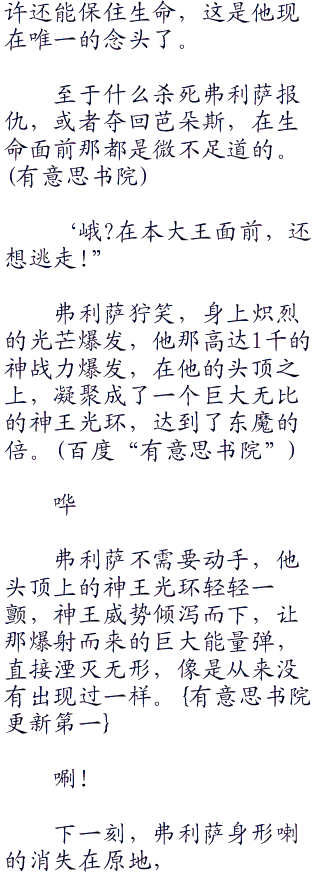 许还能保住生命，这是他现
在唯一的念头了。
至于什么杀死弗利萨报
仇，或者夺回芭朵斯，在生
命面前那都是微不足道的。
(有意思书院)
‘峨?在本大王面前，还
想逃走!”
弗利萨狞笑，身上炽烈
的光芒爆发，他那高达1千的
神战力爆发，在他的头顶之
上，凝聚成了一个巨大无比
的神王光环，达到了东魔的
倍。(百度“有意思书院”)
哗
弗利萨不需要动手，他
头顶上的神王光环轻轻一
颤，神王威势倾泻而下，让
那爆射而来的巨大能量弹，
直接湮灭无形，像是从来没
有出现过一样。{有意思书院
更新第一}
唰!
下一刻，弗利萨身形喇
的消失在原地，